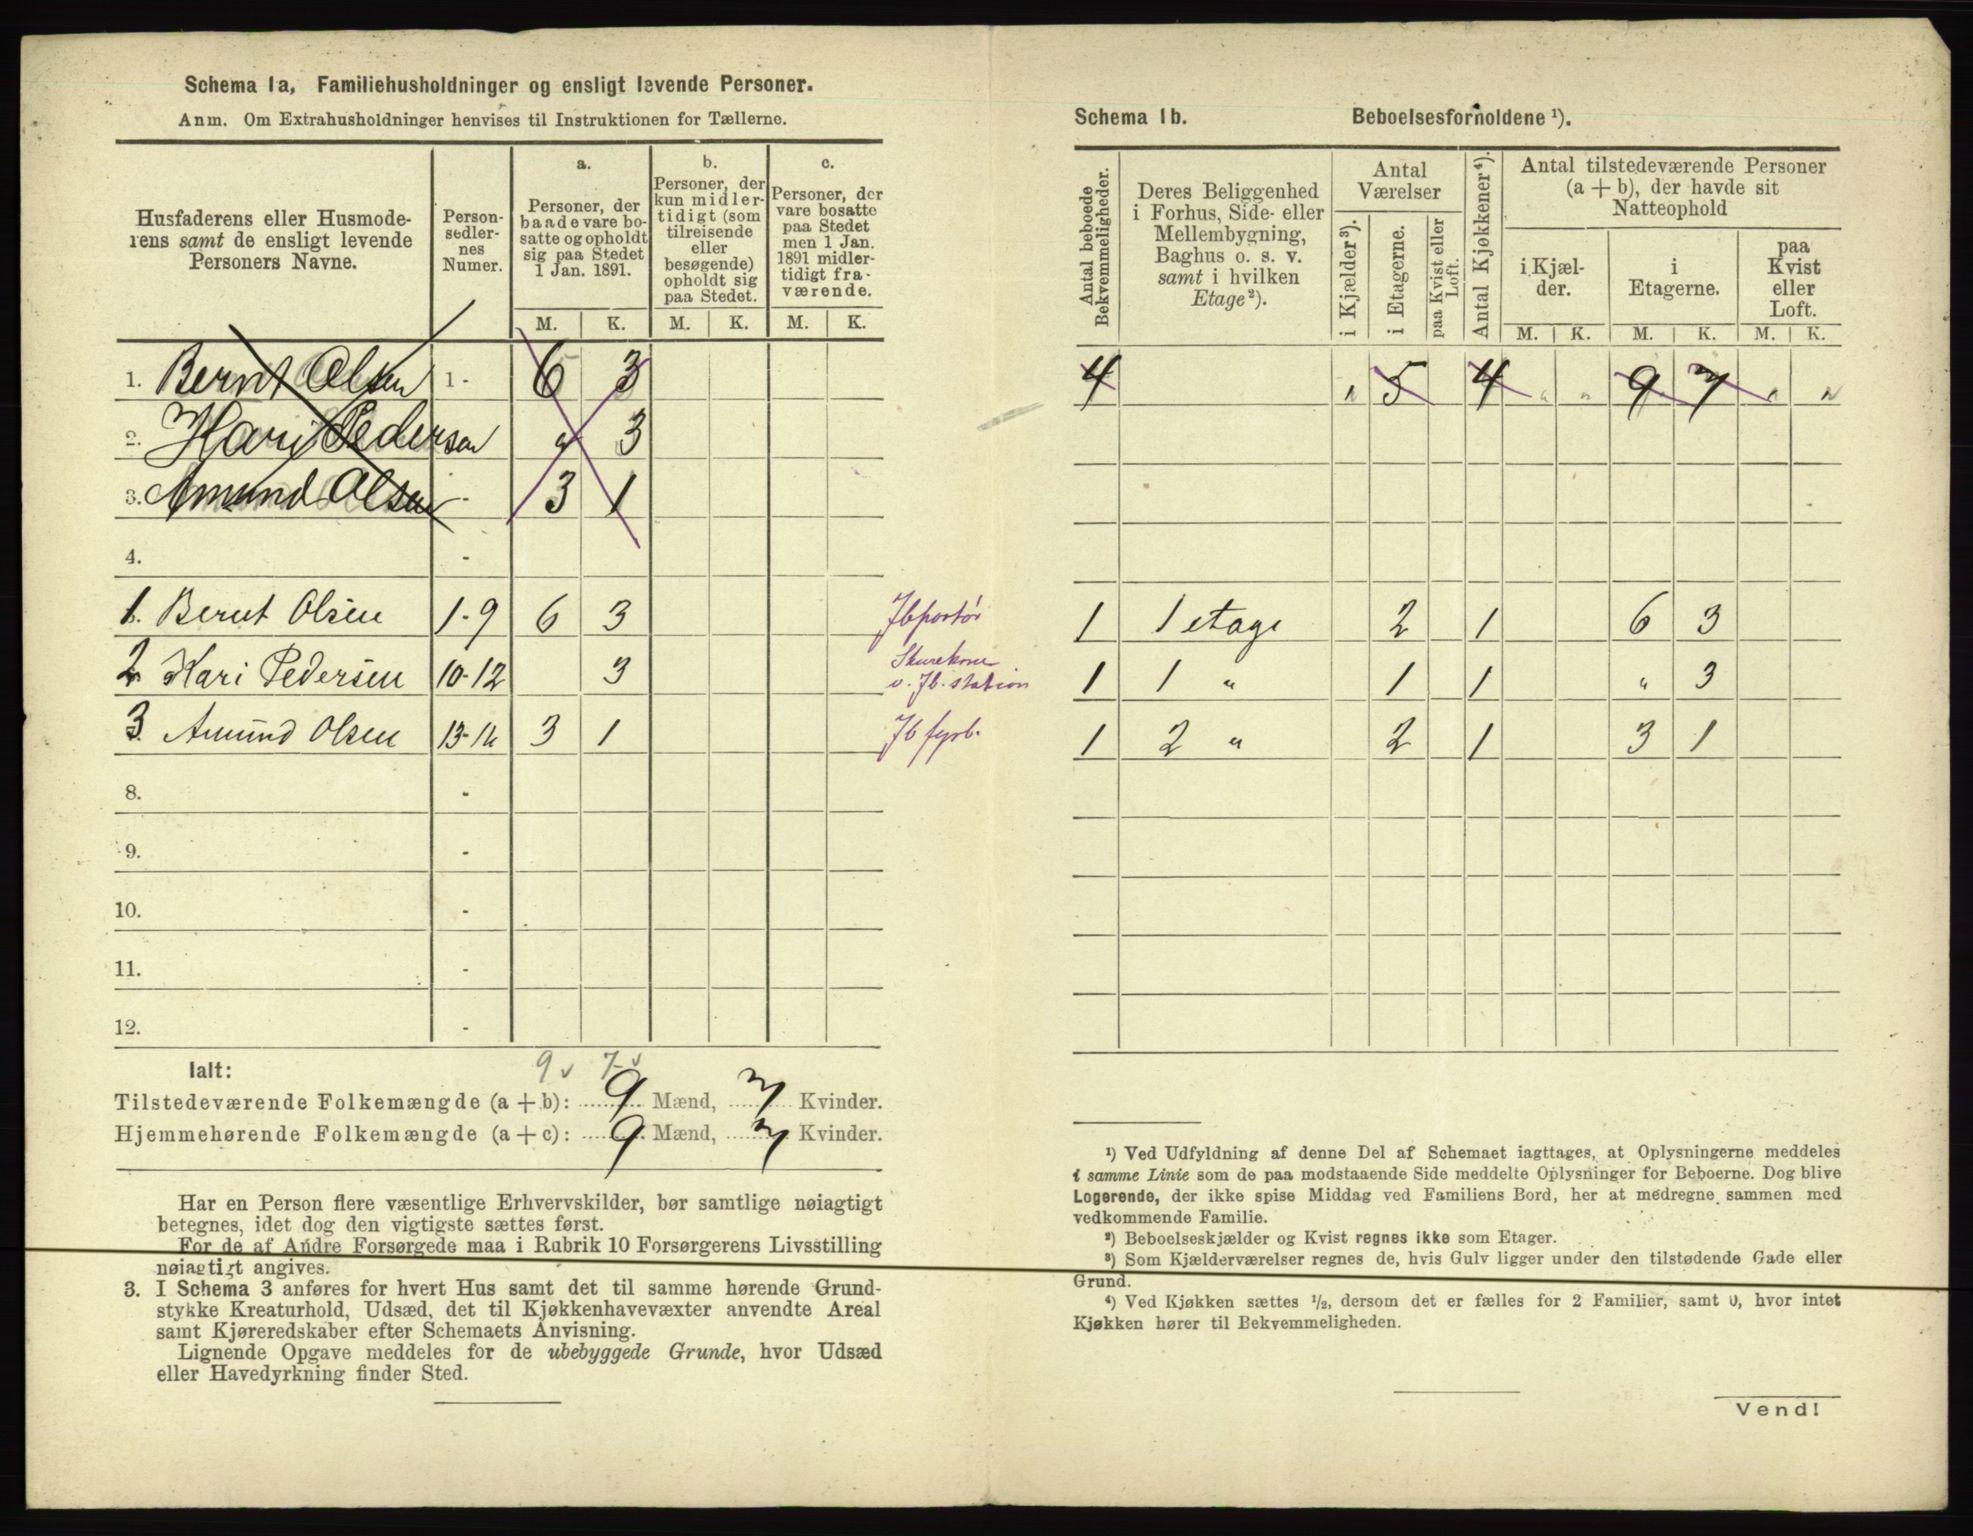 Schema 1a, Familiehusholdninger og ensligt levende Personer.
Anm. Om Extrahusholdninger henvises til Instruktionen for Tællerne.
Husfaderens eller Husmode-
rens samt de ensligt levende
Personers Navne.
Person-
sedler-
nes
Numer.
a.
Personer, der
baade vare bo-
satte og opholdt
sig paa Stedet
1 Jan. 1891.
b.
Personer, der
kun midler-
tidigt (som
tilreisende
eller
besøgende)
opholdt sig
paa Stedet.
c.
Personer, der
vare bosatte
paa Stedet
men 1 Jan.
1891 midler-
tidigt fra-
værende.
M. K. M. K. M. K.
1. Bernt Olsen 1 - 6 3
2. Kari Pedersen " 3
3. Amund Olsen - 3 1
4. -
1. Bernt Olsen 1-9 6 3 Jbportør
2 Kari Pedersen 10-12 3 Skurekone
v. Jb. station
3 Amund Olsen 13-16 3 1 Jb fyrb.
8. -
9. -
10. -
11. -
12. -
9 v 7 v
Ialt:
Tilstedeværende Folkemængde (a + b): 9 Mænd, 7 Kvinder.
Hjemmehørende Folkemængde (a + c): 9 Mænd, 7 Kvinder.
Har en Person flere væsentlige Erhvervskilder, bør samtlige nøiagtigt
betegnes, idet dog den vigtigste sættes først.
For de af Andre Forsørgede maa i Rubrik 10 Forsørgerens Livsstilling
nøiagtigt angives.
3. I Schema 3 anføres for hvert Hus samt det til samme hørende Grund-
stykke Kreaturhold, Udsæd, det til Kjøkkenhavevæxter anvendte Areal
samt Kjøreredskaber efter Schemaets Anvisning.
Lignende Opgave meddeles for de ubebyggede Grunde, hvor Udsæd
eller Havedyrkning finder Sted.
Schema 1b. Beboelsesforholdene ¹).
Antal beboede
Bekvemmeligheder.
Deres Beliggenhed
i Forhus, Side- eller
Mellembygning,
Baghus o. s. v.
samt i hvilken
Etage²).
Antal
Værelser
i Kjælder³).
i Etagerne.
paa Kvist eller
Loft.
Antal Kjøkkener⁴).
Antal tilstedeværende Personer
(a + b), der havde sit
Natteophold
i Kjæl-
der.
i
Etagerne.
paa
Kvist
eller
Loft.
M. K. M. K. M. K.
4 " 5 4 " " 9 7 " "
1 1 etage 2 1 6 3
1 1 " 1 1 " 3
1 2 " 2 1 3 1
¹) Ved Udfyldning af denne Del af Schemaet iagttages, at Oplysningerne meddeles
i samme Linie som de paa modstaaende Side meddelte Oplysninger for Beboerne. Dog blive
Logerende, der ikke spise Middag ved Familiens Bord, her at medregne sammen med
vedkommende Familie.
²) Beboelseskjælder og Kvist regnes ikke som Etager.
³) Som Kjælderværelser regnes de, hvis Gulv ligger under den tilstødende Gade eller
Grund.
⁴) Ved Kjøkken sættes ½, dersom det er fælles for 2 Familier, samt 0, hvor intet
Kjøkken hører til Bekvemmeligheden.
Vend!